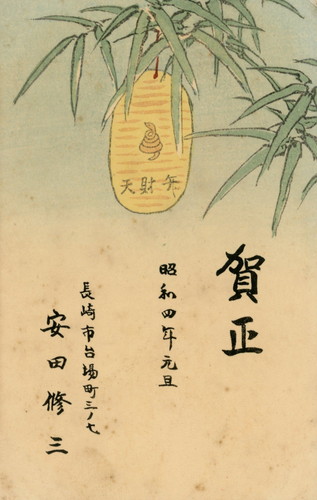 弁財天
賀正
昭和四年元旦
長崎市台場町三ノ七
安田修三